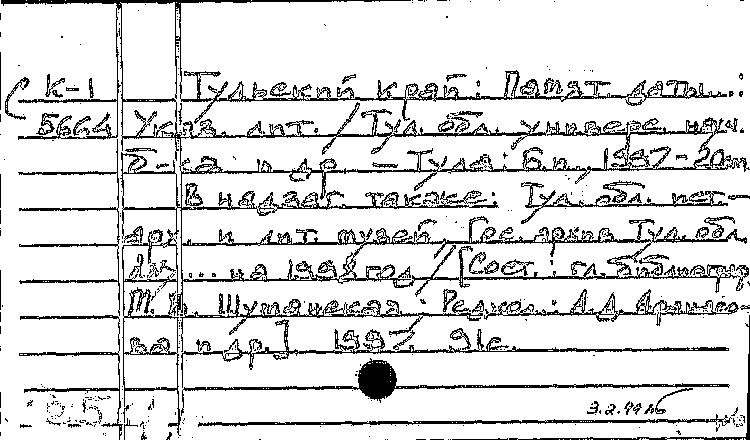 К-1 Тульский край: Памят. даты...:
5664 Указ. лит. / Тул. обл. универс. науч.
б-ка и др. – Тула: Б.и., 1997 - 20см
В надзаг. также: Тул. обл. ист.-
арх. и лит. музей, Гос. архив Тул. обл.
... на 1998 год / [Сост.: гл. библиограф
Т. В. Шутанская; Редкол.: А.Д.
ва и др.]. 1997. 91с.
3.2.99